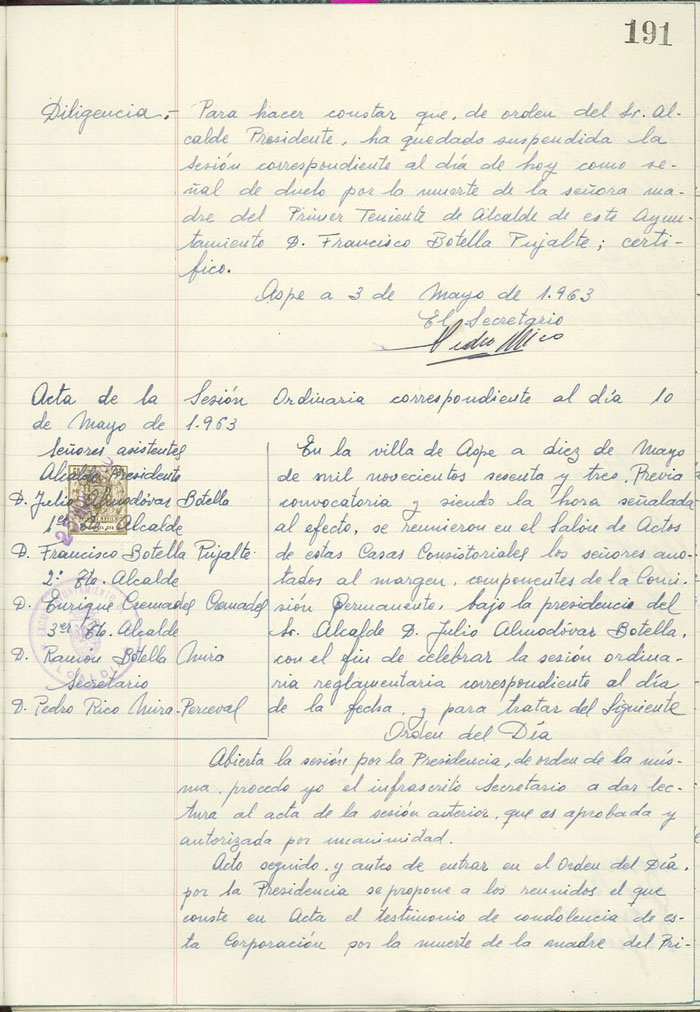 191
Diligencia.- Para hacer constar que, de orden del Sr. Al-
calde Presidente, ha quedado suspendida la
sesión correspondiente al día de hoy como se-
ñal de duelo por la muerte de la señora ma-
dre del Primer Teniente de Alcalde de este Ayun-
tamiento D. Francisco Botella Pujalte; certi-
fico.
Aspe a 3 de Mayo de 1.963
El Secretario
Pedro Rico
Acta de la Sesión Ordinaria correspondiente al día 10
de Mayo de 1.963
Señores asistentes
Alcalde Presidente
D. Julio Almodóvar Botella
1er Tte. Alcalde
D. Francisco Botella Pujalte
2º Tte. Alcalde
D. Enrique Cremades Cremades
3er Tte. Alcalde
D. Ramón Botella Mira
Secretario
D. Pedro Rico Mira-Perceval
En la villa de Aspe a diez de Mayo
de mil novecientos sesenta y tres. Previa
convocatoria y siendo la hora señalada
al efecto, se reunieron en el Salón de Actos
de estas Casas Consistoriales los señores ano-
tados al margen, componentes de la Comi-
sión Permanente, bajo la presidencia del
Sr. Alcalde D. Julio Almodóvar Botella,
con el fin de celebrar la sesión ordina-
ria reglamentaria correspondiente al día
de la fecha, y para tratar del siguiente
Orden del Día
Abierta la sesión por la Presidencia, de orden de la mis-
ma, procedo yo el infrascrito Secretario a dar lec-
tura al acta de la sesión anterior, que es aprobada y
autorizada por unanimidad.
Acto seguido, y antes de entrar en el Orden del Día,
por la Presidencia se propone a los reunidos el que
conste en Acta el testimonio de condolencia de es-
ta Corporación por la muerte de la madre del Pri-